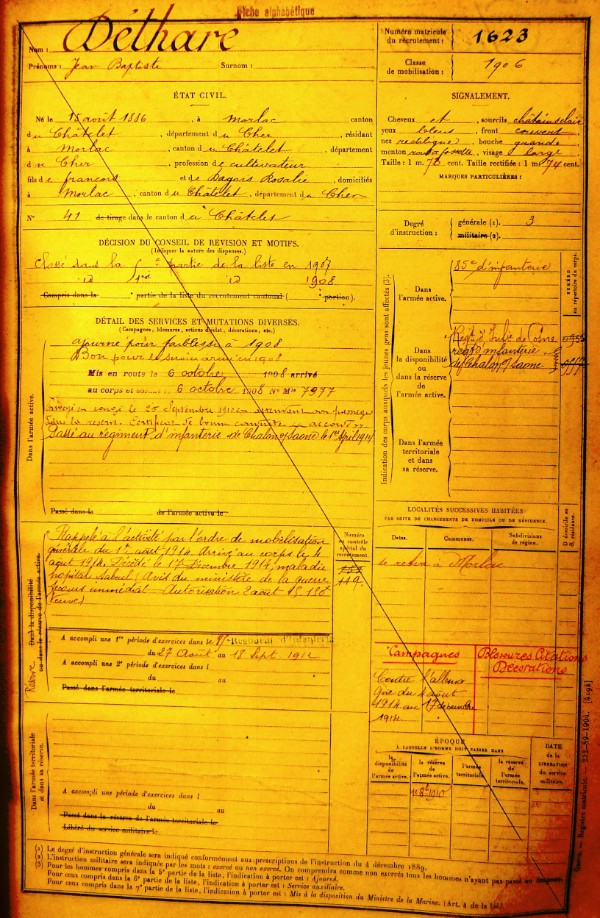 Fiche alphabétique
Nom : Déthare
Prénoms : Jean Baptiste Surnom :
Numéro matricule du recrutement : 1623
Classe de mobilisation : 1906
ÉTAT CIVIL.
Né le 18 avril 1886, à Morlac, canton
du Châtelet, département du Cher, résidant
à Morlac, canton du Châtelet, département
du Cher, profession de cultivateur
fils de francois et de Rosalie, domiciliés
à Morlac, canton du Châtelet, département du Cher
N° 41 de tirage dans le canton du Châtelet
SIGNALEMENT.
Cheveux et sourcils châtains clairs
yeux bleus, front couvert
nez rectiligne, bouche grande
menton visage large
Taille : 1 m. 72 cent. Taille rectifiée : 1 m. 74 cent.
MARQUES PARTICULIÈRES :
Degré d'instruction : générale (1). 3
militaire (2).
DÉCISION DU CONSEIL DE RÉVISION ET MOTIFS.
(Indiquer la nature des dispenses.)
Classé dans la partie de la liste en 1907
id id 1908
Compris dans la partie de la liste du recrutement cantonal ( portion).
DÉTAIL DES SERVICES ET MUTATIONS DIVERSES.
(Campagnes, blessures, actions d'éclat, décorations, etc.)
ajourné pour faiblesse à 1908
Bon pour le service armé en 1908
Mis en route le 6 octobre 1908 arrivé
au corps et 6 octobre 1908 N° Mle 7977
Envoyé en congé le 25 Septembre 1910 en attendant son passage
dans la réserve. Certificat de bonne conduite accordé
Passé au régiment d'infanterie de Chalon s/ Saone le 1er April 1914
Passé dans le de l'armée active le
Dans l'armée active.
Indication des corps auxquels les jeunes gens sont affectés (3).
Dans l'armée active.
85e d'infanterie
NUMÉRO au répertoire du corps.
Dans la disponibilité ou dans la réserve de l'armée active.
Regt d'Infie de Cosne
Regt d'infanterie
de Chalon s/ Saone
Dans l'armée territoriale et dans sa réserve.
LOCALITÉS SUCCESSIVES HABITÉES
PAR SUITE DE CHANGEMENTS DE DOMICILE OU DE RÉSIDENCE.
Dates. Communes. Subdivisions de région. D domicile ou R résidence.
se retire à Morlac
Rappelé à l'activité par l'ordre de mobilisation
générale du 1er août 1914. Arrivé au corps le 4
août 1914. Décédé le 17 Décembre 1914, maladie
hopital (avis du ministère de la guerre
Secours immédiat - Autorisation 2 août 15, 150f
(veuve)
Numéro au contrôle spécial du recrutement.
119
Dans la disponibilité ou dans la réserve de l'armée active.
Réserve
A accompli une 1re période d'exercices dans le 85e Régiment d'Infanterie
du 27 Août au 18 Sept. 1912
A accompli une 2e période d'exercices dans l
du au
Passé dans l'armée territoriale le
Campagnes
Contre l'Allema
gne du 4 août
1914 au 17 décembre
1914
Blessures Citations
Décorations
Dans l'armée territoriale et dans sa réserve.
A accompli une période d'exercices dans l
du au
du au
Passé dans la réserve de l'armée territoriale le
Libéré du service militaire le
ÉPOQUE
À LAQUELLE L'HOMME DOIT PASSER DANS
la disponibilité de l'armée active.
la réserve de l'armée active.
l'armée territoriale.
la réserve de l'armée territoriale.
DATE DE LA LIBÉRATION du service militaire.
1 8bre 1910
(1) Le degré d'instruction générale sera indiqué conformément aux prescriptions de l'instruction du 4 décembre 1889.
(2) L'instruction militaire sera indiquée par les mots : exercé ou non exercé. On comprendra comme non exercés tous les hommes n'ayant pas passé
(3) Pour les hommes compris dans la 5e partie de la liste, l'indication à porter est : Ajourné.
Pour ceux compris dans la 6e partie de la liste, l'indication à porter est : Service auxiliaire.
Pour ceux compris dans la 7e partie de la liste, l'indication à porter est : Mis à la disposition du Ministre de la Marine. (Art. 4 de la loi.)